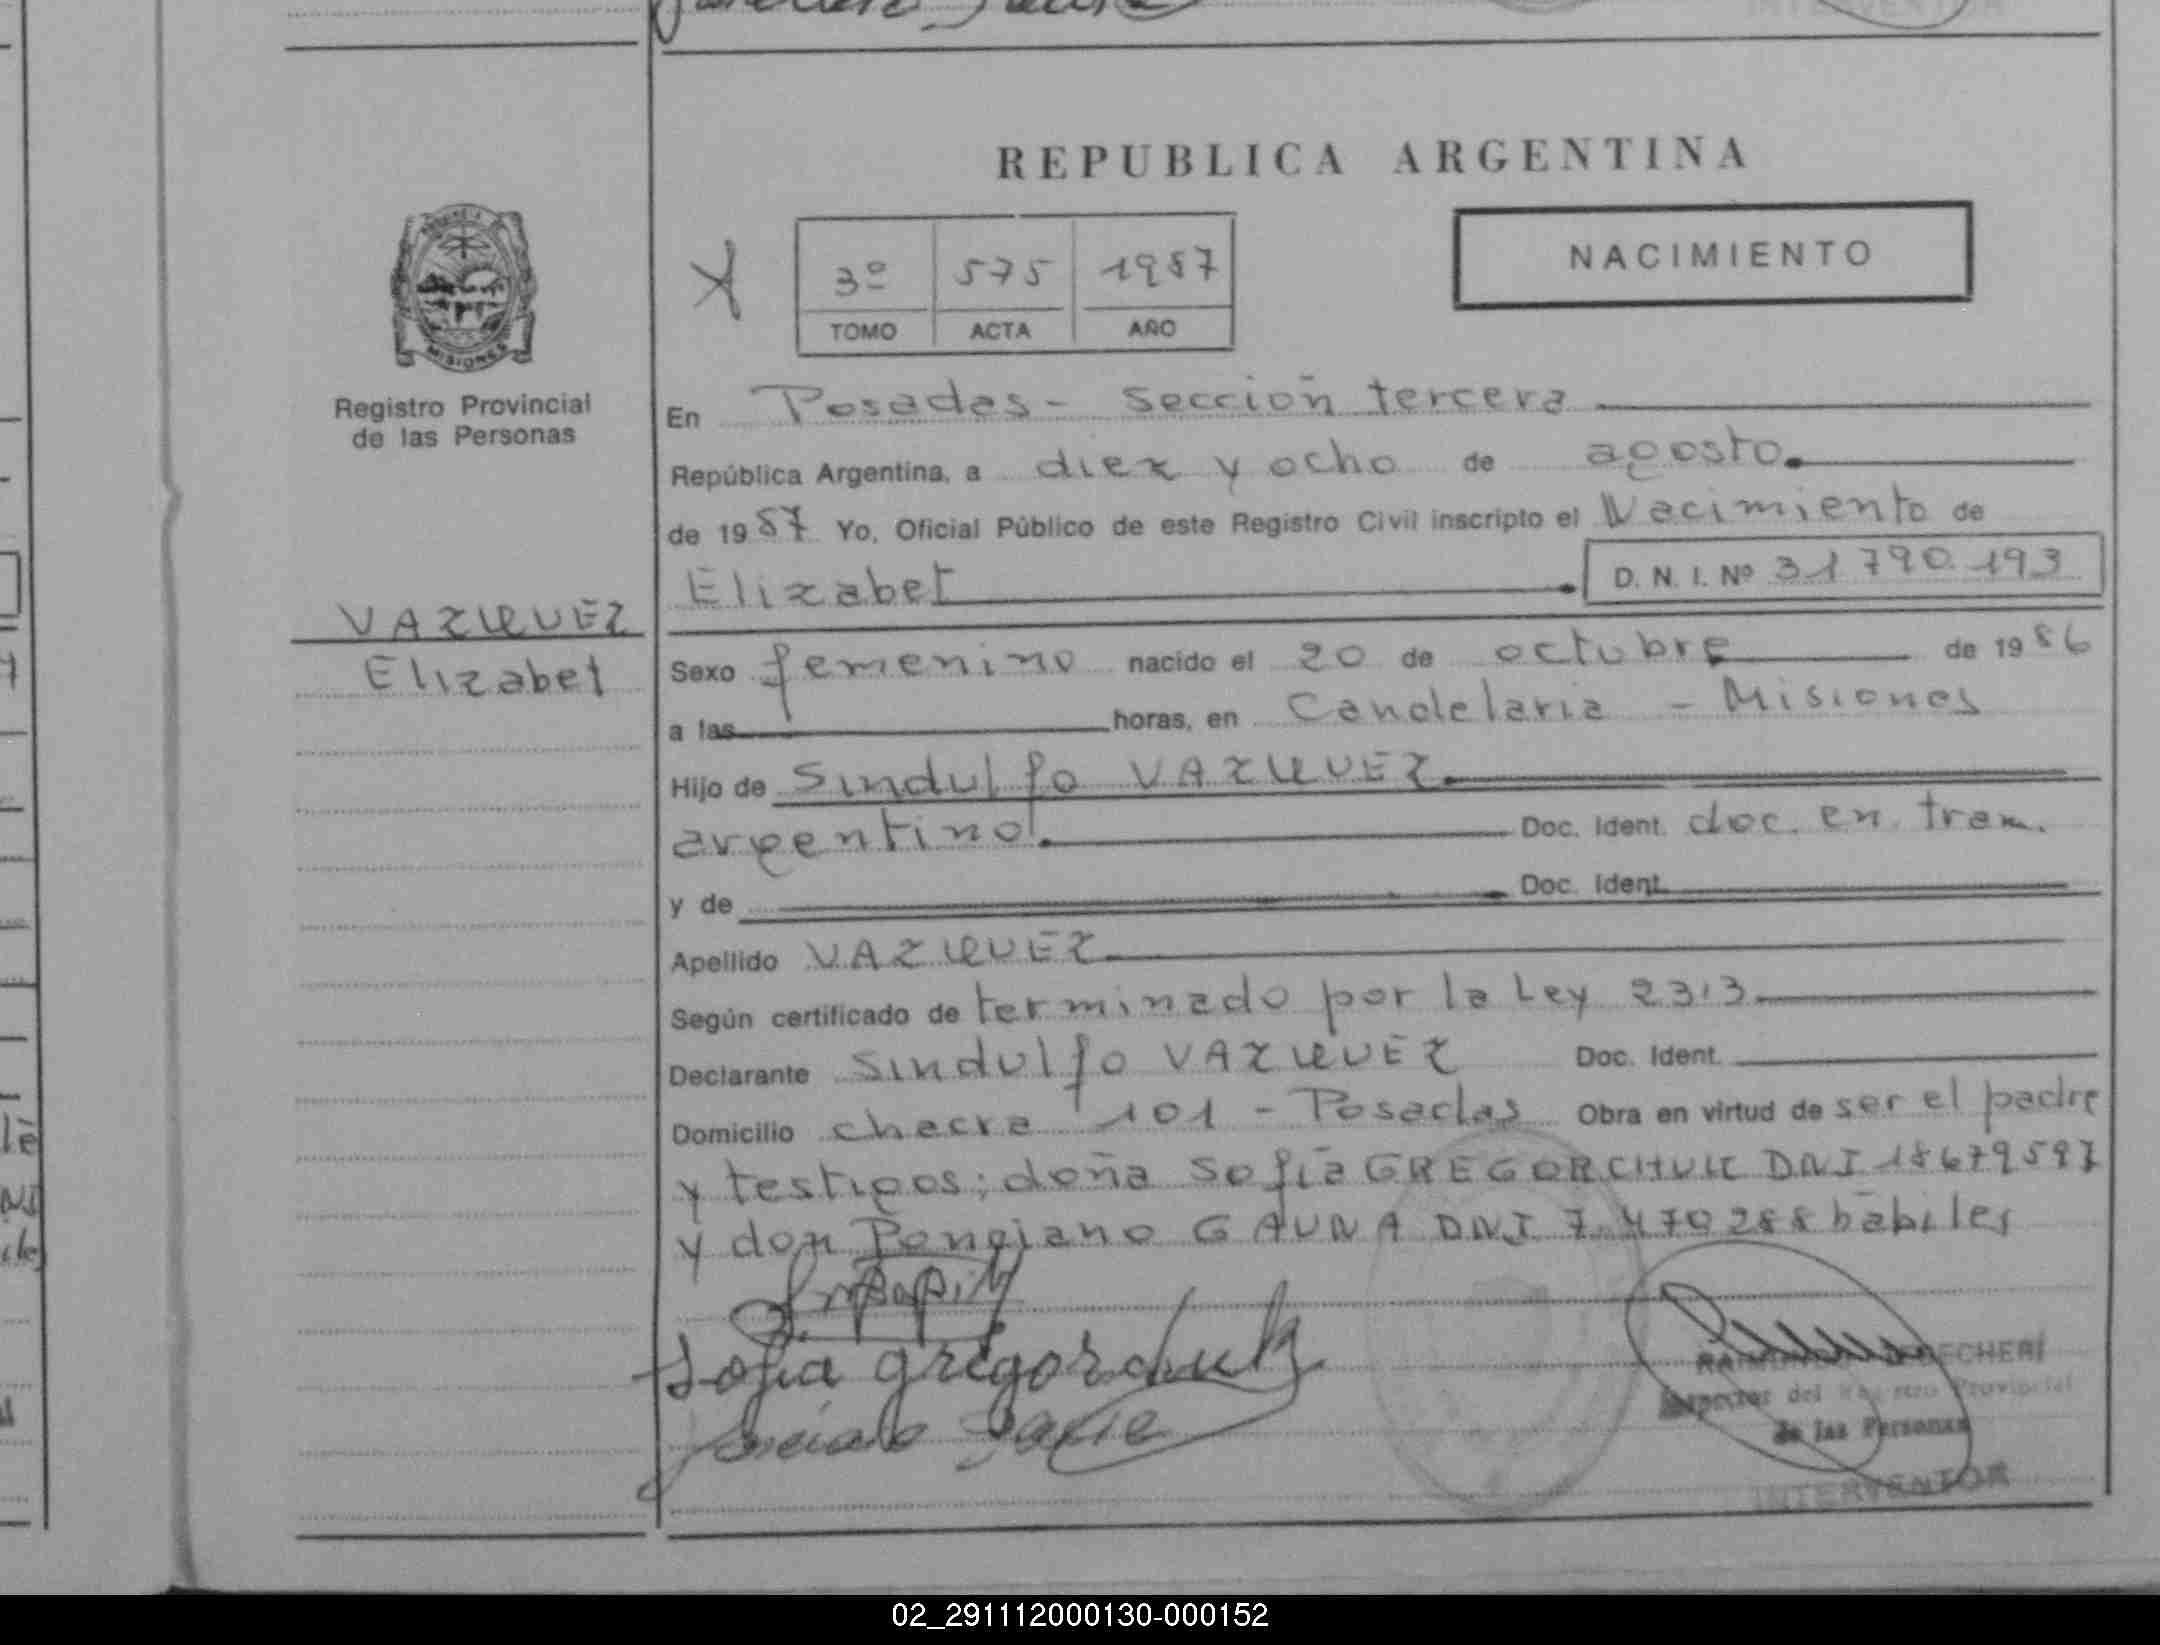 REPUBLICA ARGENTINA
NACIMIENTO
3º 575 1987
TOMO ACTA AÑO
MISIONES
Registro Provincial
de las Personas
VAZQUEZ
Elizabet
En Posadas - Sección tercera
República Argentina, a diez y ocho de agosto.
de 1987 Yo, Oficial Público de este Registro Civil inscripto el Nacimiento de
Elizabet D. N. I. Nº 31790.193
Sexo femenino nacido el 20 de octubre de 1986
a las horas, en Candelaria - Misiones
Hijo de Sindulfo VAZQUEZ.
argentino. Doc. Ident. doc. en tram.
y de Doc. Ident.
Apellido VAZQUEZ.
Según certificado de terminado por la Ley 2313.
Declarante Sindulfo VAZQUEZ Doc. Ident.
Domicilio chacra 101 - Posadas Obra en virtud de ser el padre
y testigos; doña Sofía GREGORCHUK DNI 18679597
y don Ponciano GAUNA DNI 7.470288 hábiles
Sofia gregorchuk
Inspector del Registro Provincial
de las Personas
INTERVENTOR
02_291112000130-000152